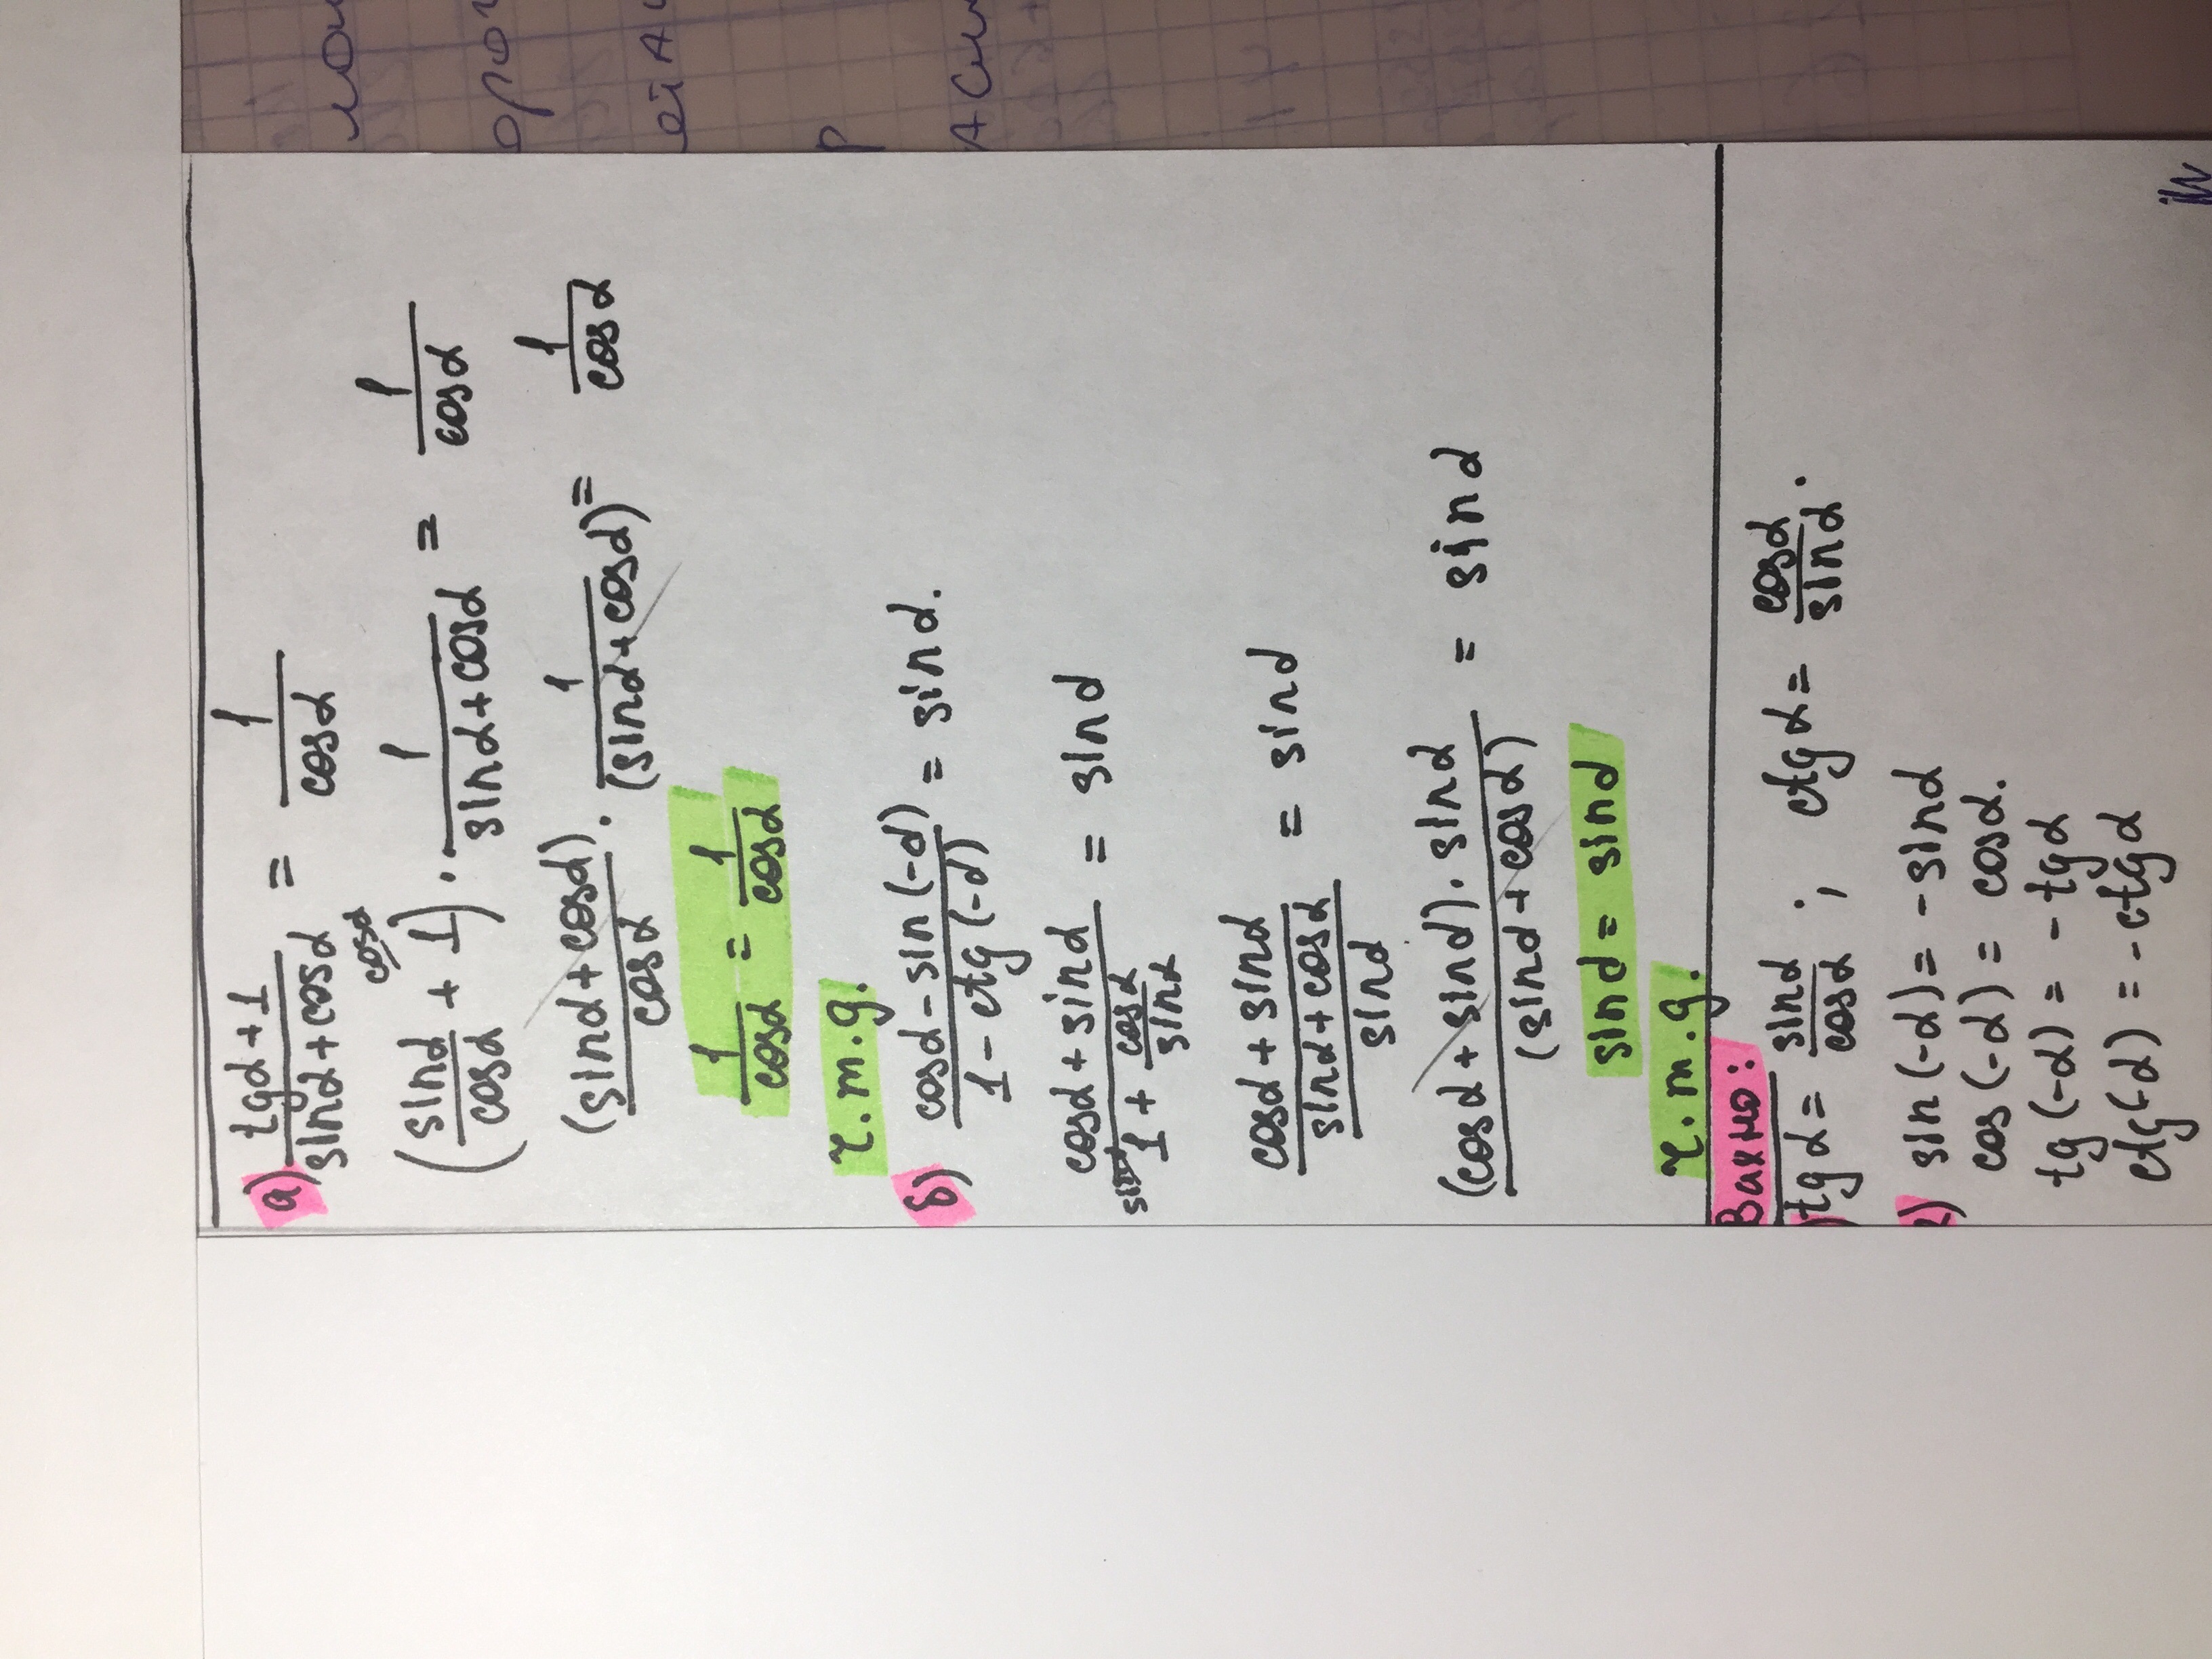 а) (tgα+1)/(sinα+cosα) = 1/cosα
(sinα/cosα + 1^cosα) · 1/(sinα+cosα) = 1/cosα
(sinα+cosα)/cosα · 1/(sinα+cosα) = 1/cosα
1/cosα = 1/cosα
ч.т.g.
б) (cosα-sin(-α))/(1-ctg(-α)) = sinα.
(cosα+sinα)/(^sinα 1 + cosα/sinα) = sinα
(cosα+sinα)/((sinα+cosα)/sinα) = sinα
((cosα+sinα)·sinα)/(sinα+cosα) = sinα
sinα = sinα
ч.т.g.
Важно:
) tgα = sinα/cosα ; ctgα = cosα/sinα.
2) sin(-α) = -sinα
cos(-α) = cosα.
tg(-α) = -tgα
ctg(-α) = -ctgα